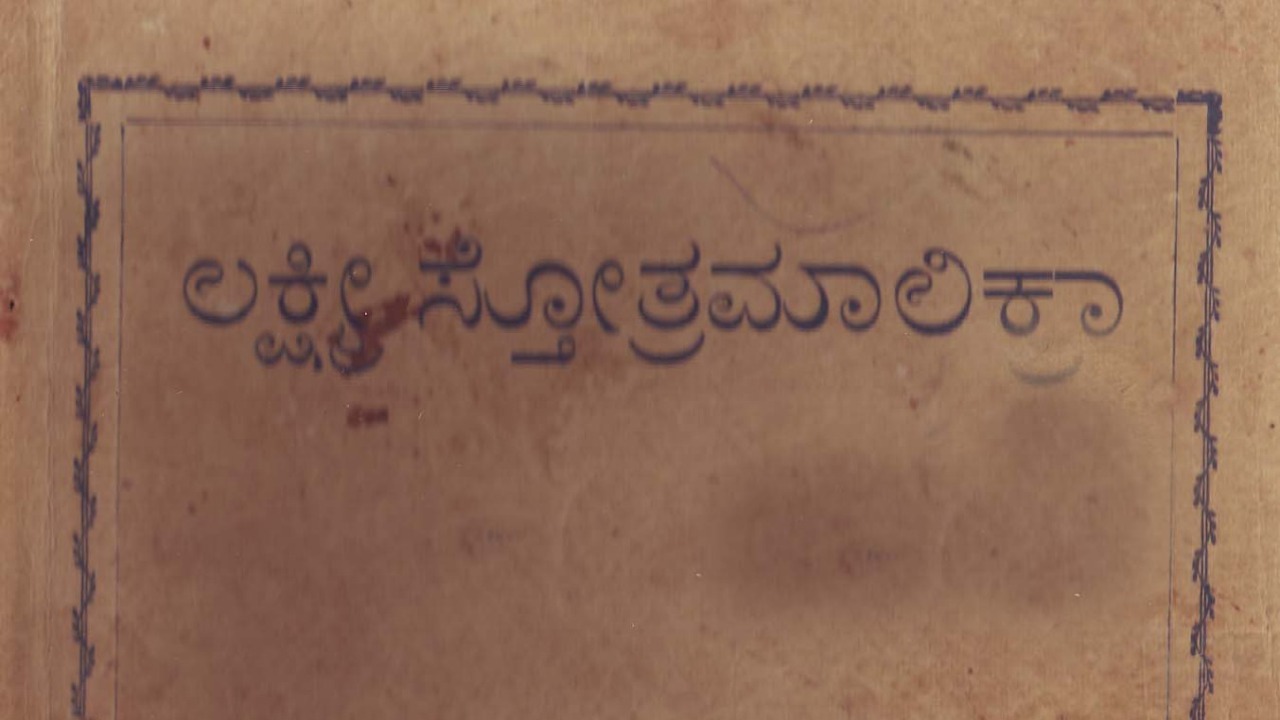 ಲಕ್ಷ್ಮೀ ಸ್ತೋತ್ರಮಾಲಿಕಾ